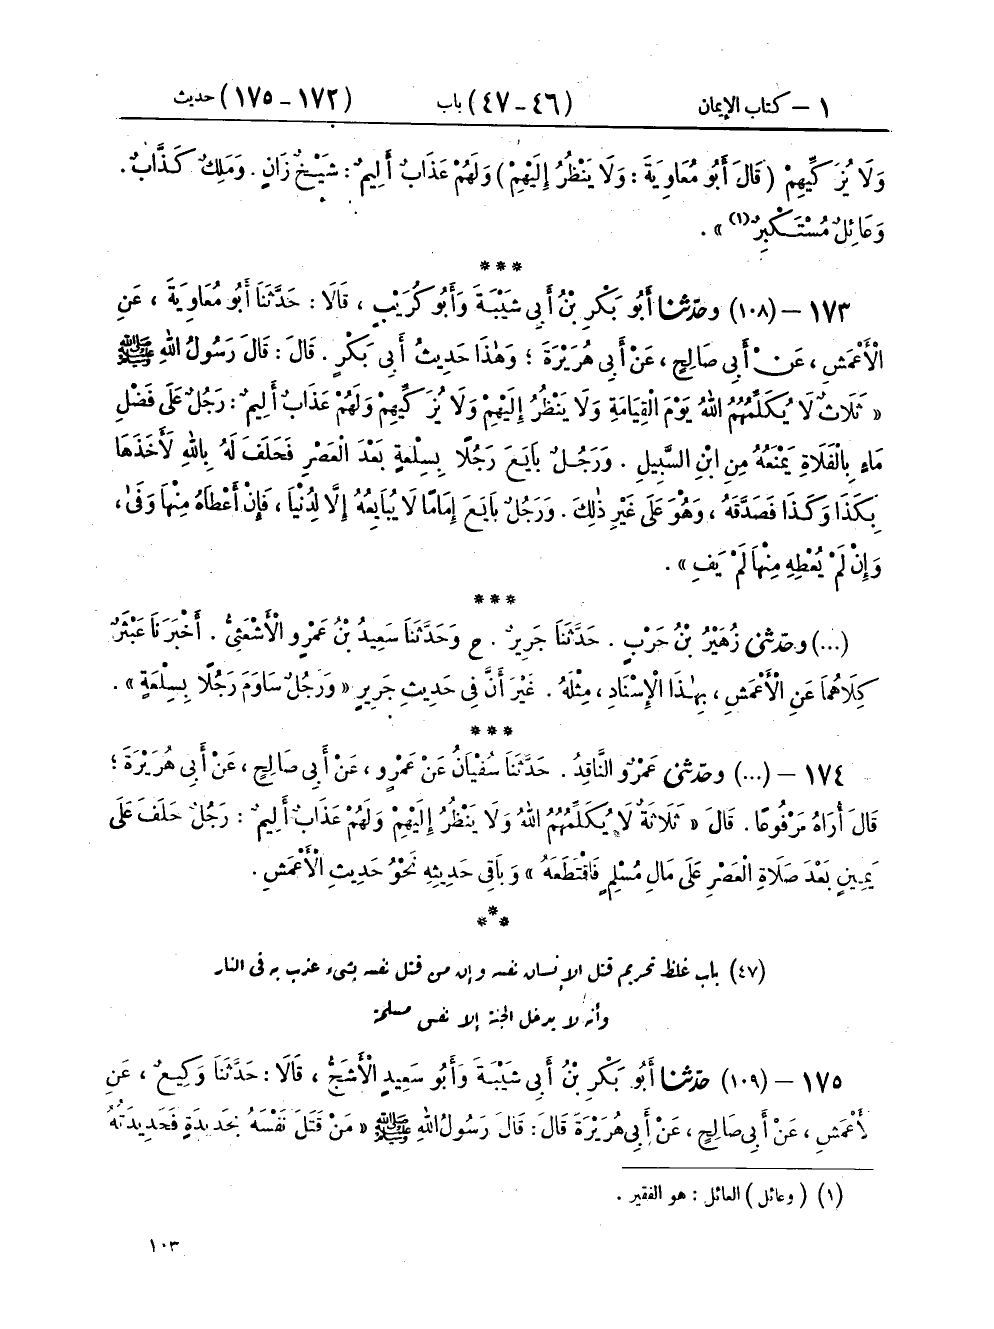 ١ – كتاب الإيمان (٤٦ – ٤٧) باب (١٧٢ – ١٧٥) حديث
وَلَا يُزَكِّيهِمْ (قَالَ أَبُو مُعَاوِيَةَ : وَلَا يَنْظُرُ إِلَيْهِمْ) وَلَهُمْ عَذَابٌ أَلِيمٌ : شَيْخٌ زَانٍ . وَمَلِكٌ كَذَّابٌ .
وَعَائِلٌ مُسْتَكْبِرٌ(١) » .
***
١٧٣ – (١٠٨) وحدثنا أَبُو بَكْرِ بْنُ أَبِي شَيْبَةَ وَأَبُو كُرَيْبٍ ، قَالَا : حَدَّثَنَا أَبُو مُعَاوِيَةَ ، عَنِ
الْأَعْمَشِ ، عَنْ أَبِي صَالِحٍ ، عَنْ أَبِي هُرَيْرَةَ ؛ وَهٰذَا حَدِيثُ أَبِي بَكْرٍ . قَالَ : قَالَ رَسُولُ اللهِ ﷺ
« ثَلَاثٌ لَا يُكَلِّمُهُمُ اللهُ يَوْمَ الْقِيَامَةِ وَلَا يَنْظُرُ إِلَيْهِمْ وَلَا يُزَكِّيهِمْ وَلَهُمْ عَذَابٌ أَلِيمٌ : رَجُلٌ عَلَى فَضْلِ
مَاءٍ بِالْفَلَاةِ يَمْنَعُهُ مِنِ ابْنِ السَّبِيلِ . وَرَجُلٌ بَايَعَ رَجُلًا بِسِلْعَةٍ بَعْدَ الْعَصْرِ فَحَلَفَ لَهُ بِاللهِ لَأَخَذَهَا
بِكَذَا وَكَذَا فَصَدَّقَهُ ، وَهُوَ عَلَى غَيْرِ ذٰلِكَ . وَرَجُلٌ بَايَعَ إِمَامًا لَا يُبَايِعُهُ إِلَّا لِدُنْيَا ، فَإِنْ أَعْطَاهُ مِنْهَا وَفَىٰ ،
وَإِنْ لَمْ يُعْطِهِ مِنْهَا لَمْ يَفِ » .
***
(...) وحدثني زُهَيْرُ بْنُ حَرْبٍ . حَدَّثَنَا جَرِيرٌ . ح وَحَدَّثَنَا سَعِيدُ بْنُ عَمْرٍو الْأَشْعَثِيُّ . أَخْبَرَنَا عَبْثَرٌ
كِلَاهُمَا عَنِ الْأَعْمَشِ ، بِهٰذَا الْإِسْنَادِ ، مِثْلَهُ . غَيْرَ أَنَّ فِي حَدِيثِ جَرِيرٍ « وَرَجُلٌ سَاوَمَ رَجُلًا بِسِلْعَةٍ » .
***
١٧٤ – (...) وحدثني عَمْرٌو النَّاقِدُ . حَدَّثَنَا سُفْيَانُ عَنْ عَمْرٍو ، عَنْ أَبِي صَالِحٍ ، عَنْ أَبِي هُرَيْرَةَ ؛
قَالَ أُرَاهُ مَرْفُوعًا . قَالَ « ثَلَاثَةٌ لَا يُكَلِّمُهُمُ اللهُ وَلَا يَنْظُرُ إِلَيْهِمْ وَلَهُمْ عَذَابٌ أَلِيمٌ : رَجُلٌ حَلَفَ عَلَى
يَمِينٍ بَعْدَ صَلَاةِ الْعَصْرِ عَلَى مَالِ مُسْلِمٍ فَاقْتَطَعَهُ » وَبَاقِي حَدِيثِهِ نَحْوُ حَدِيثِ الْأَعْمَشِ .
***
(٤٧) باب غلظ تحريم قتل الإنسان نفسه وإن من قتل نفسه بشىء عذب به فى النار
وأنه لا يدخل الجنة إلا نفس مسلمة
١٧٥ – (١٠٩) حدثنا أَبُو بَكْرِ بْنُ أَبِي شَيْبَةَ وَأَبُو سَعِيدٍ الْأَشَجُّ ، قَالَا : حَدَّثَنَا وَكِيعٌ ، عَنِ
لأَعْمَشِ ، عَنْ أَبِي صَالِحٍ ، عَنْ أَبِي هُرَيْرَةَ قَالَ : قَالَ رَسُولُ اللهِ ﷺ « مَنْ قَتَلَ نَفْسَهُ بِحَدِيدَةٍ فَحَدِيدَتُهُ
(١) ( وعائل ) العائل : هو الفقير .
١٠٣